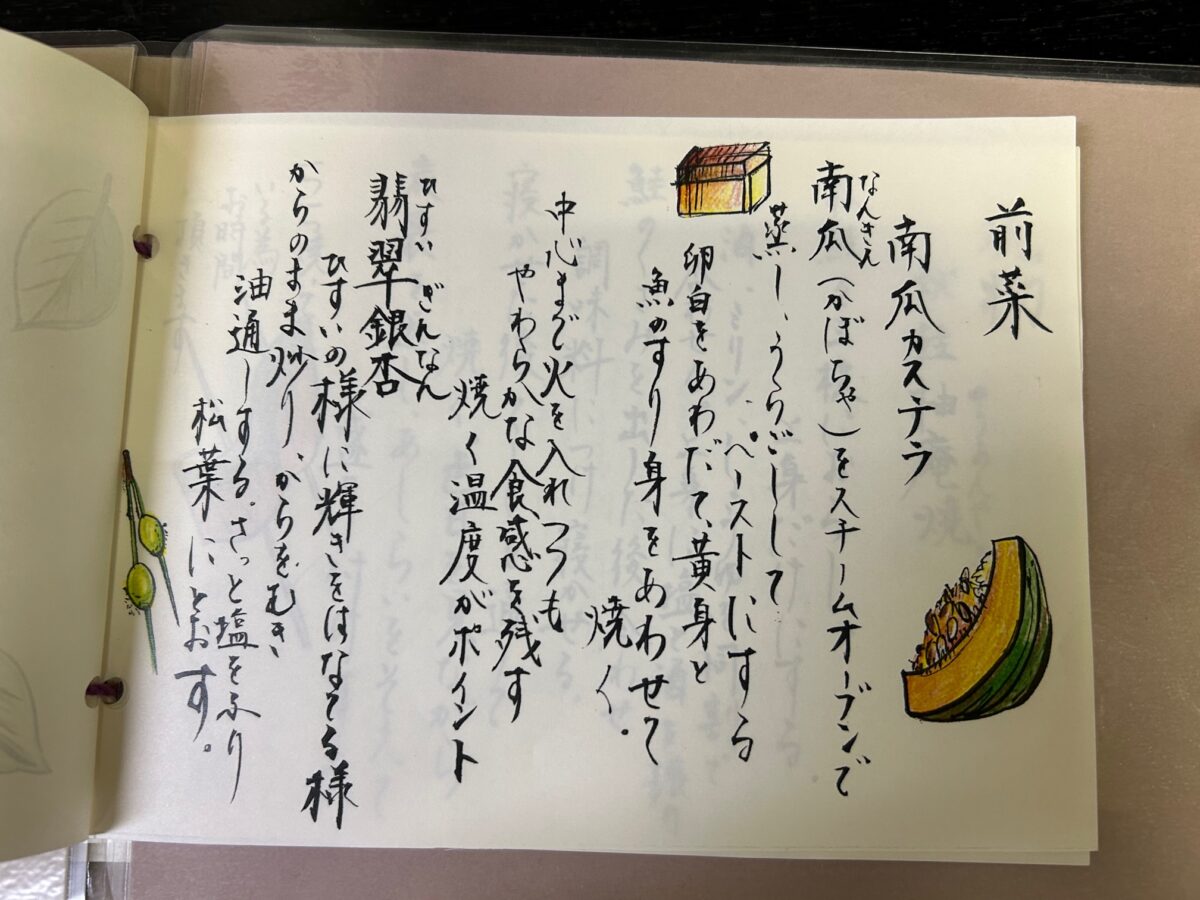 前菜
南瓜カステラ
なんきん
南瓜(かぼちゃ)をスチームオーブンで
蒸し、うらごしして
ペーストにする
卵白をあわだて、黄身と
魚のすり身をあわせて
焼く。
中心まで火を入れつつも
やわらかな食感を残す
焼く温度がポイント
ひすい ぎんなん
翡翠銀杏
ひすいの様に輝きをはなてる様
からのまま炒り、からをむき
油通しする。さっと塩をふり
松葉にとおす。